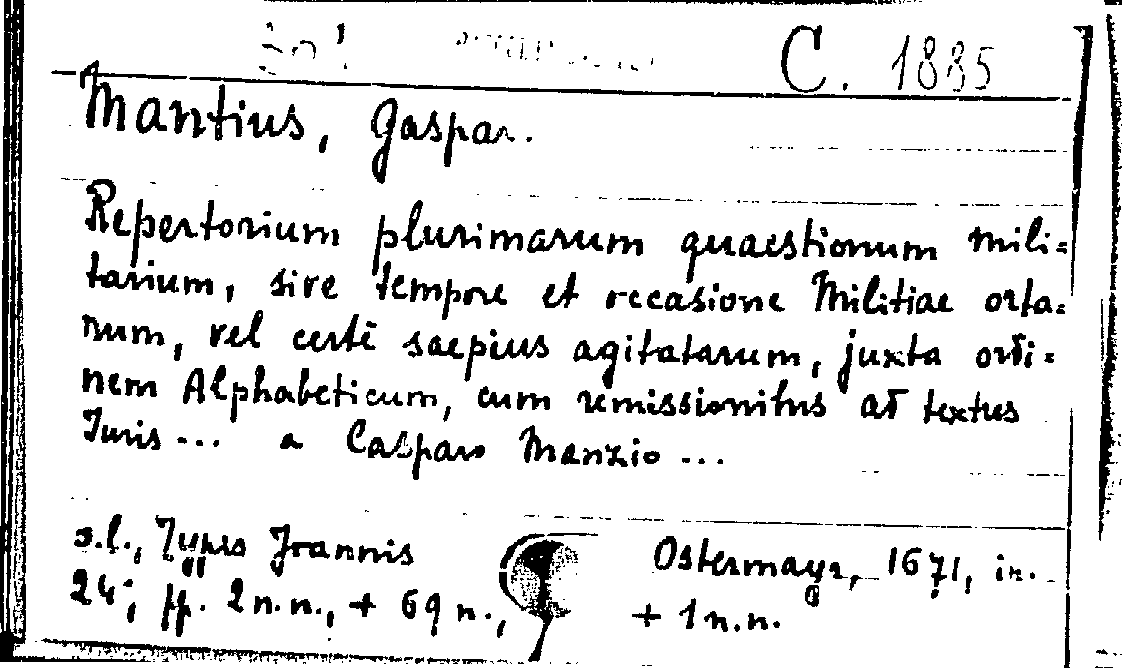 C. 1885
Mantius, Gaspar.
Repertorium plurimarum quaestionum mili=
tarium, sive tempore et occasione Militiae orta=
rum, vel certè saepius agitatarum, juxta ordi=
nem Alphabeticum, cum remissionibus ad textus
Iuris... a Casparo Manzio...
s.l., Typis Joannis Ostermayr, 1671, in.
24°, pp. 2 n.n., + 69 n., + 1 n.n.